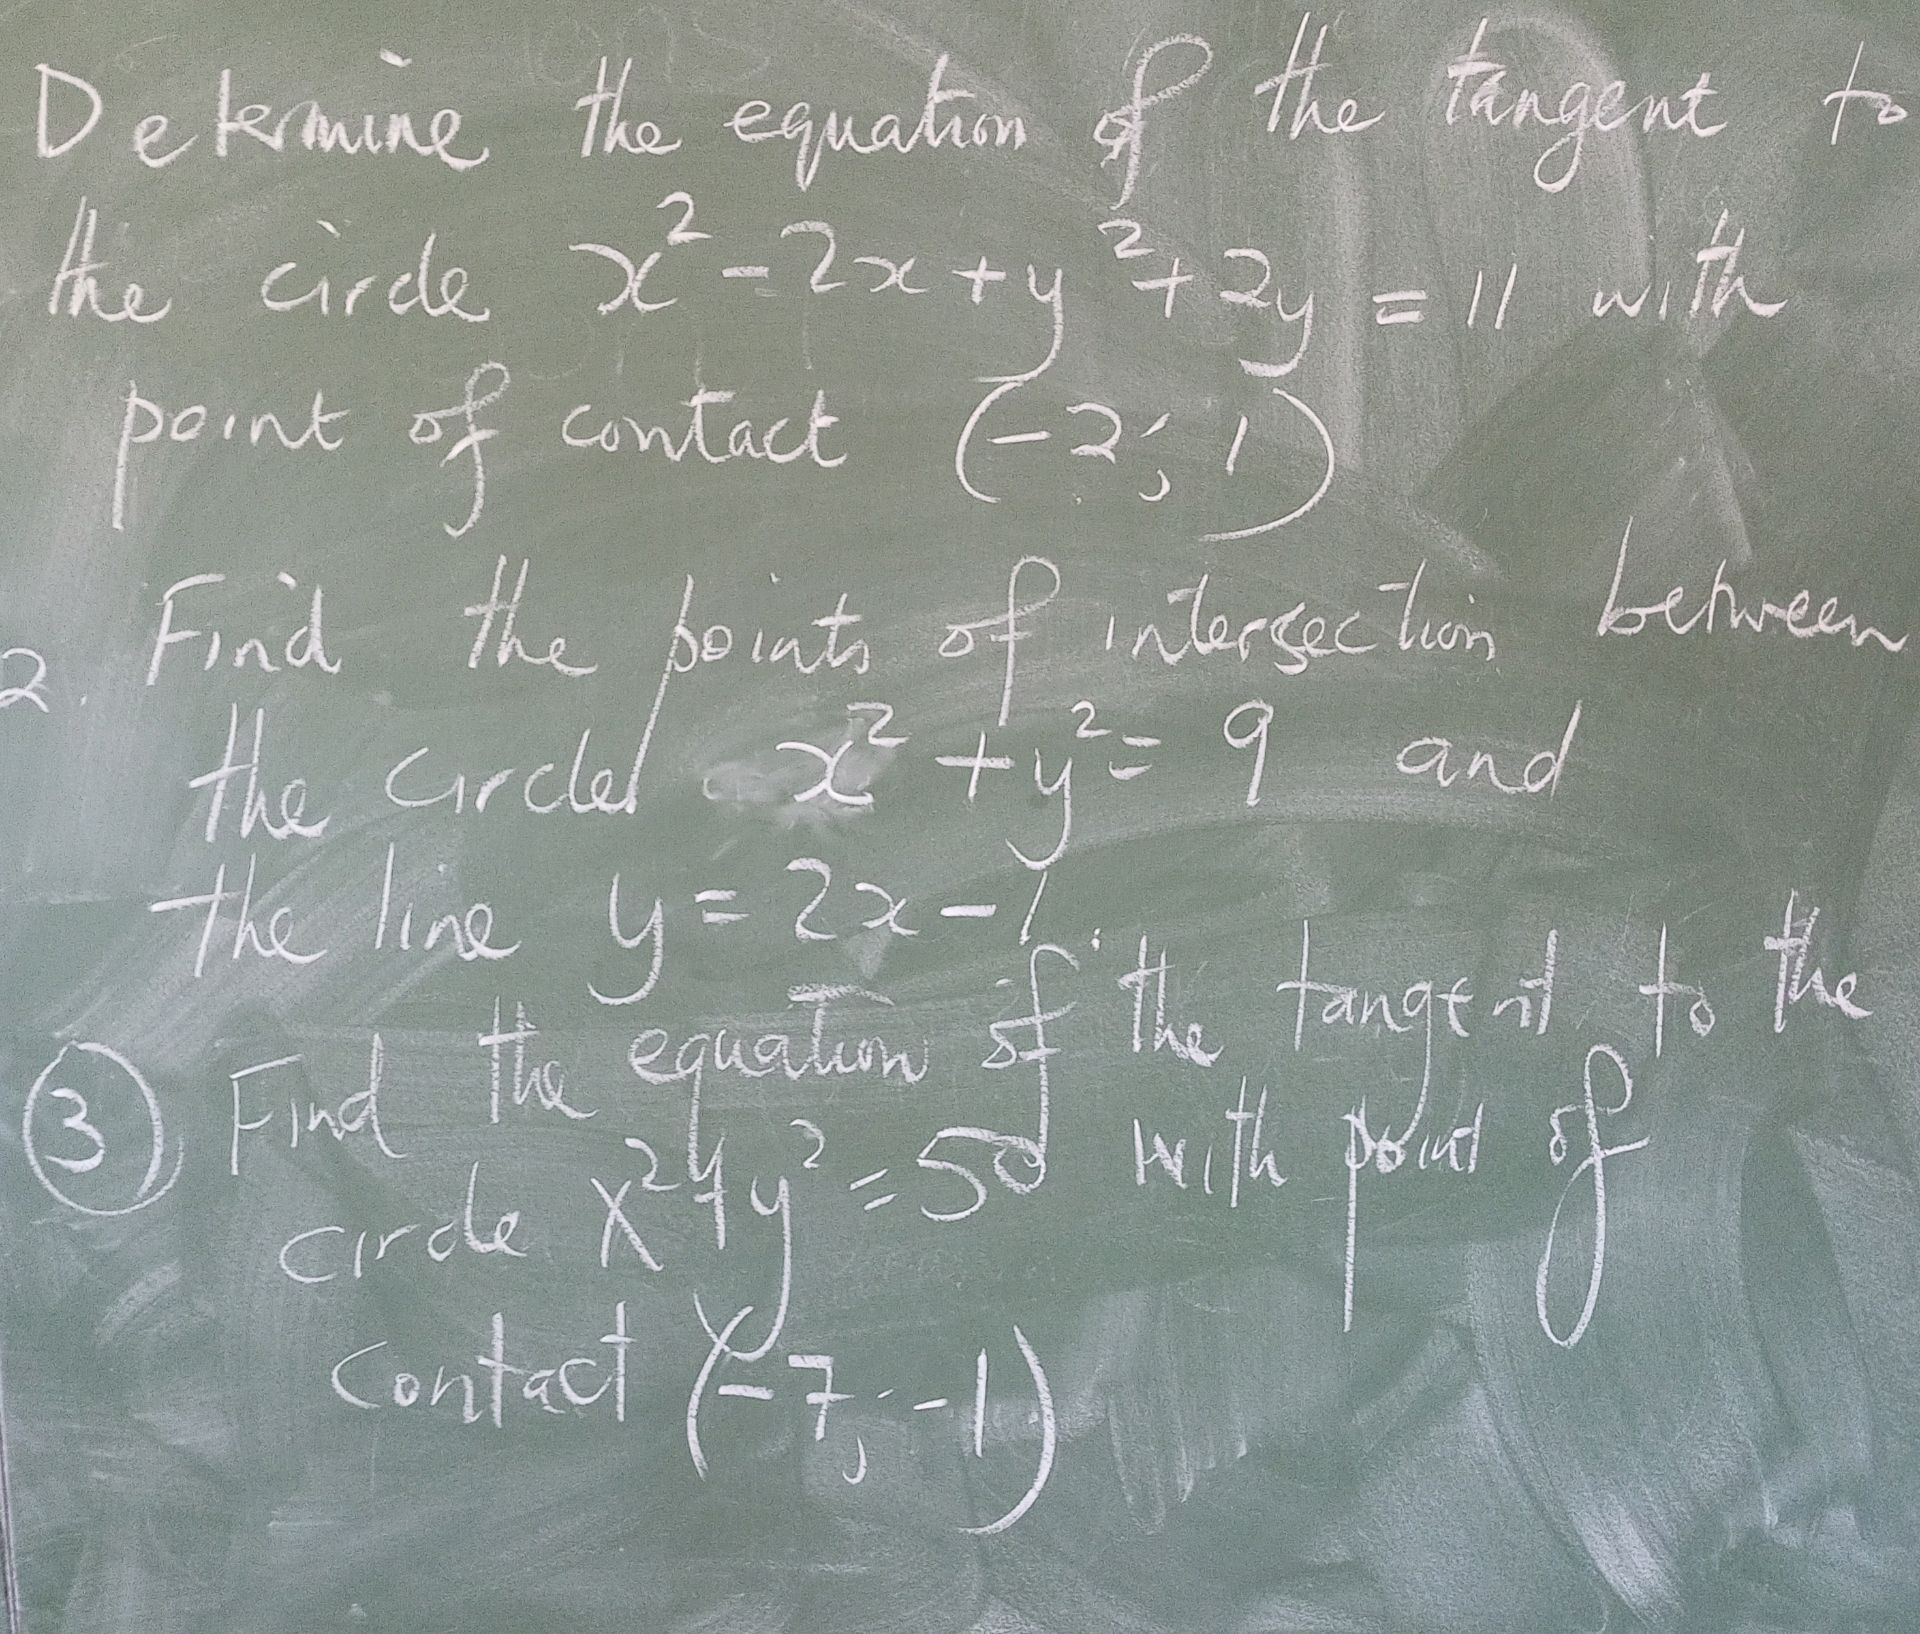 Determine the equation of the tangent to
the circle x² - 2x + y² + 2y = 11 with
point of contact (-2; 1)
2. Find the points of intersection between
the circle x² + y² = 9 and
the line y = 2x - 1
③ Find the equation of the tangent to the
circle x² + y² = 50 with point of
contact (-7; -1)